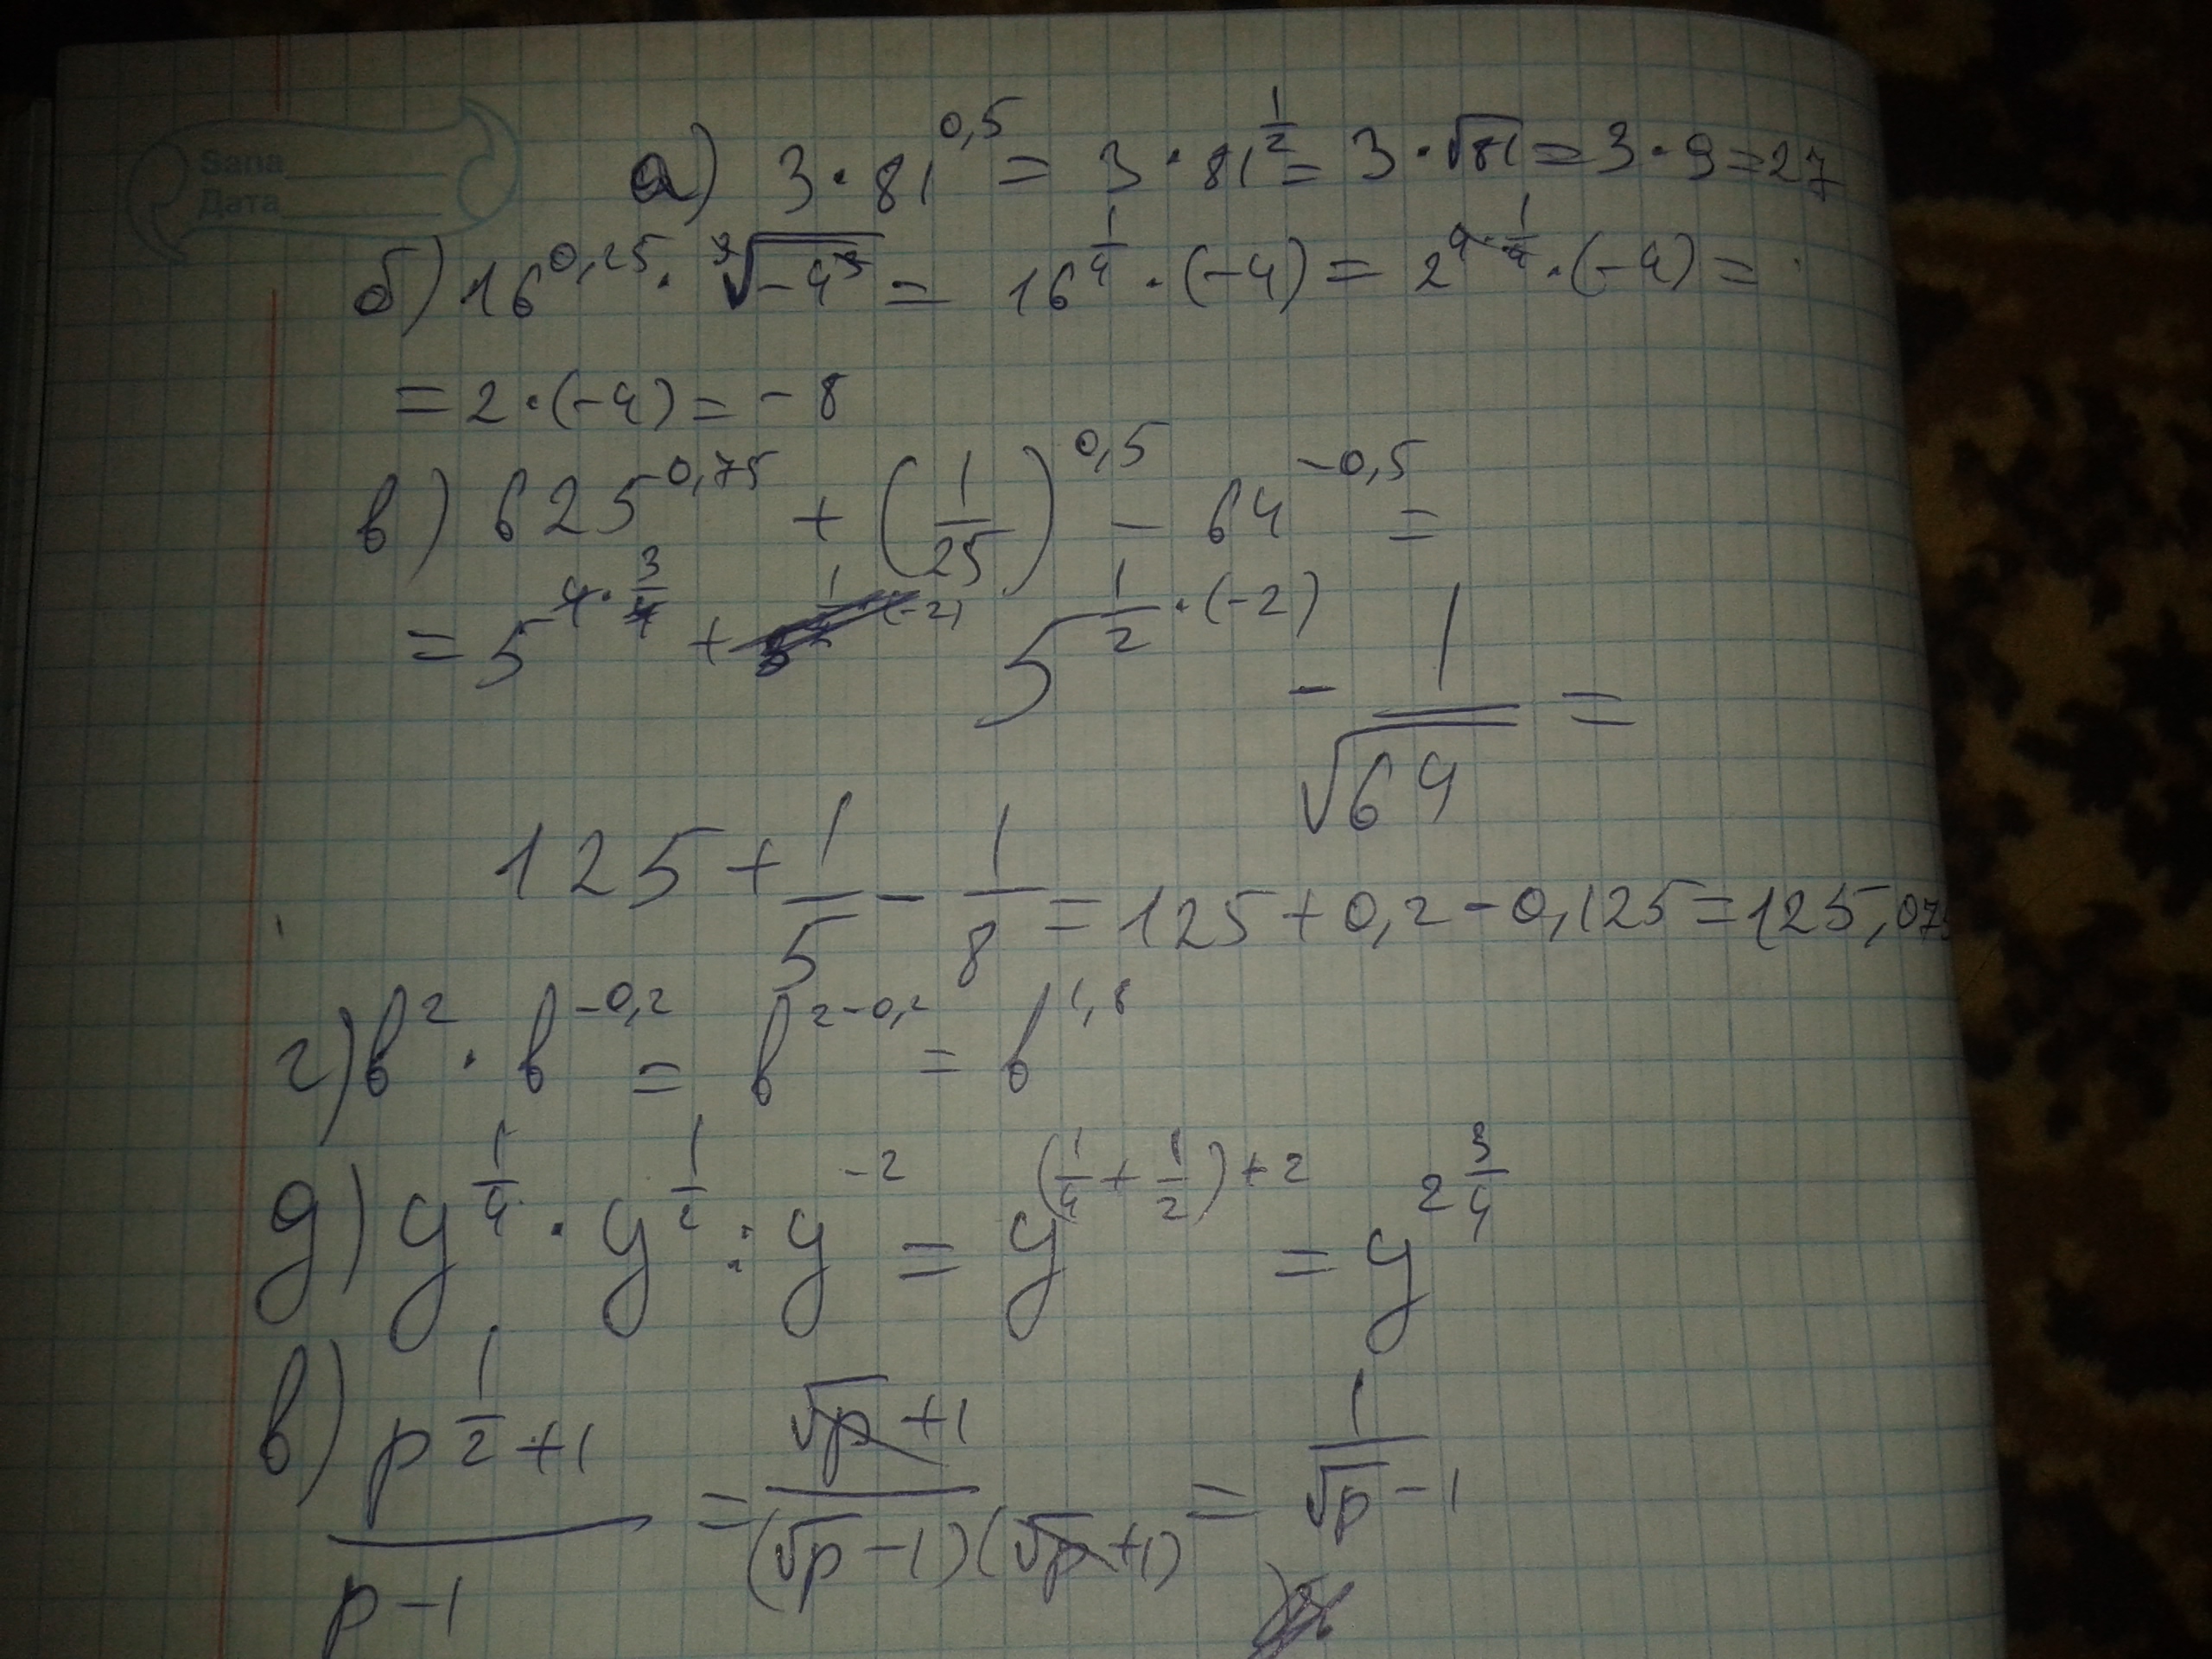 Sana
Дата
а) 3 · 81^0,5 = 3 · 81^(1/2) = 3 · √81 = 3 · 9 = 27
б) 16^0,25 · ³√(-4³) = 16^(1/4) · (-4) = 2^(4 · 1/4) · (-4) =
= 2 · (-4) = -8
в) 625^0,75 + (1/25)^0,5 - 64^-0,5 =
= 5^(4 · 3/4) + 5^(1/2 · (-2)) - 1/√64 =
125 + 1/5 - 1/8 = 125 + 0,2 - 0,125 = 125,075
г) b² · b^-0,2 = b^(2-0,2) = b^1,8
д) y^(1/4) · y^(1/2) : y^-2 = y^((1/4 + 1/2) + 2) = y^(2 3/4)
в) (p^(1/2) + 1)/(p - 1) = (√p + 1)/((√p - 1)(√p + 1)) = 1/(√p - 1)